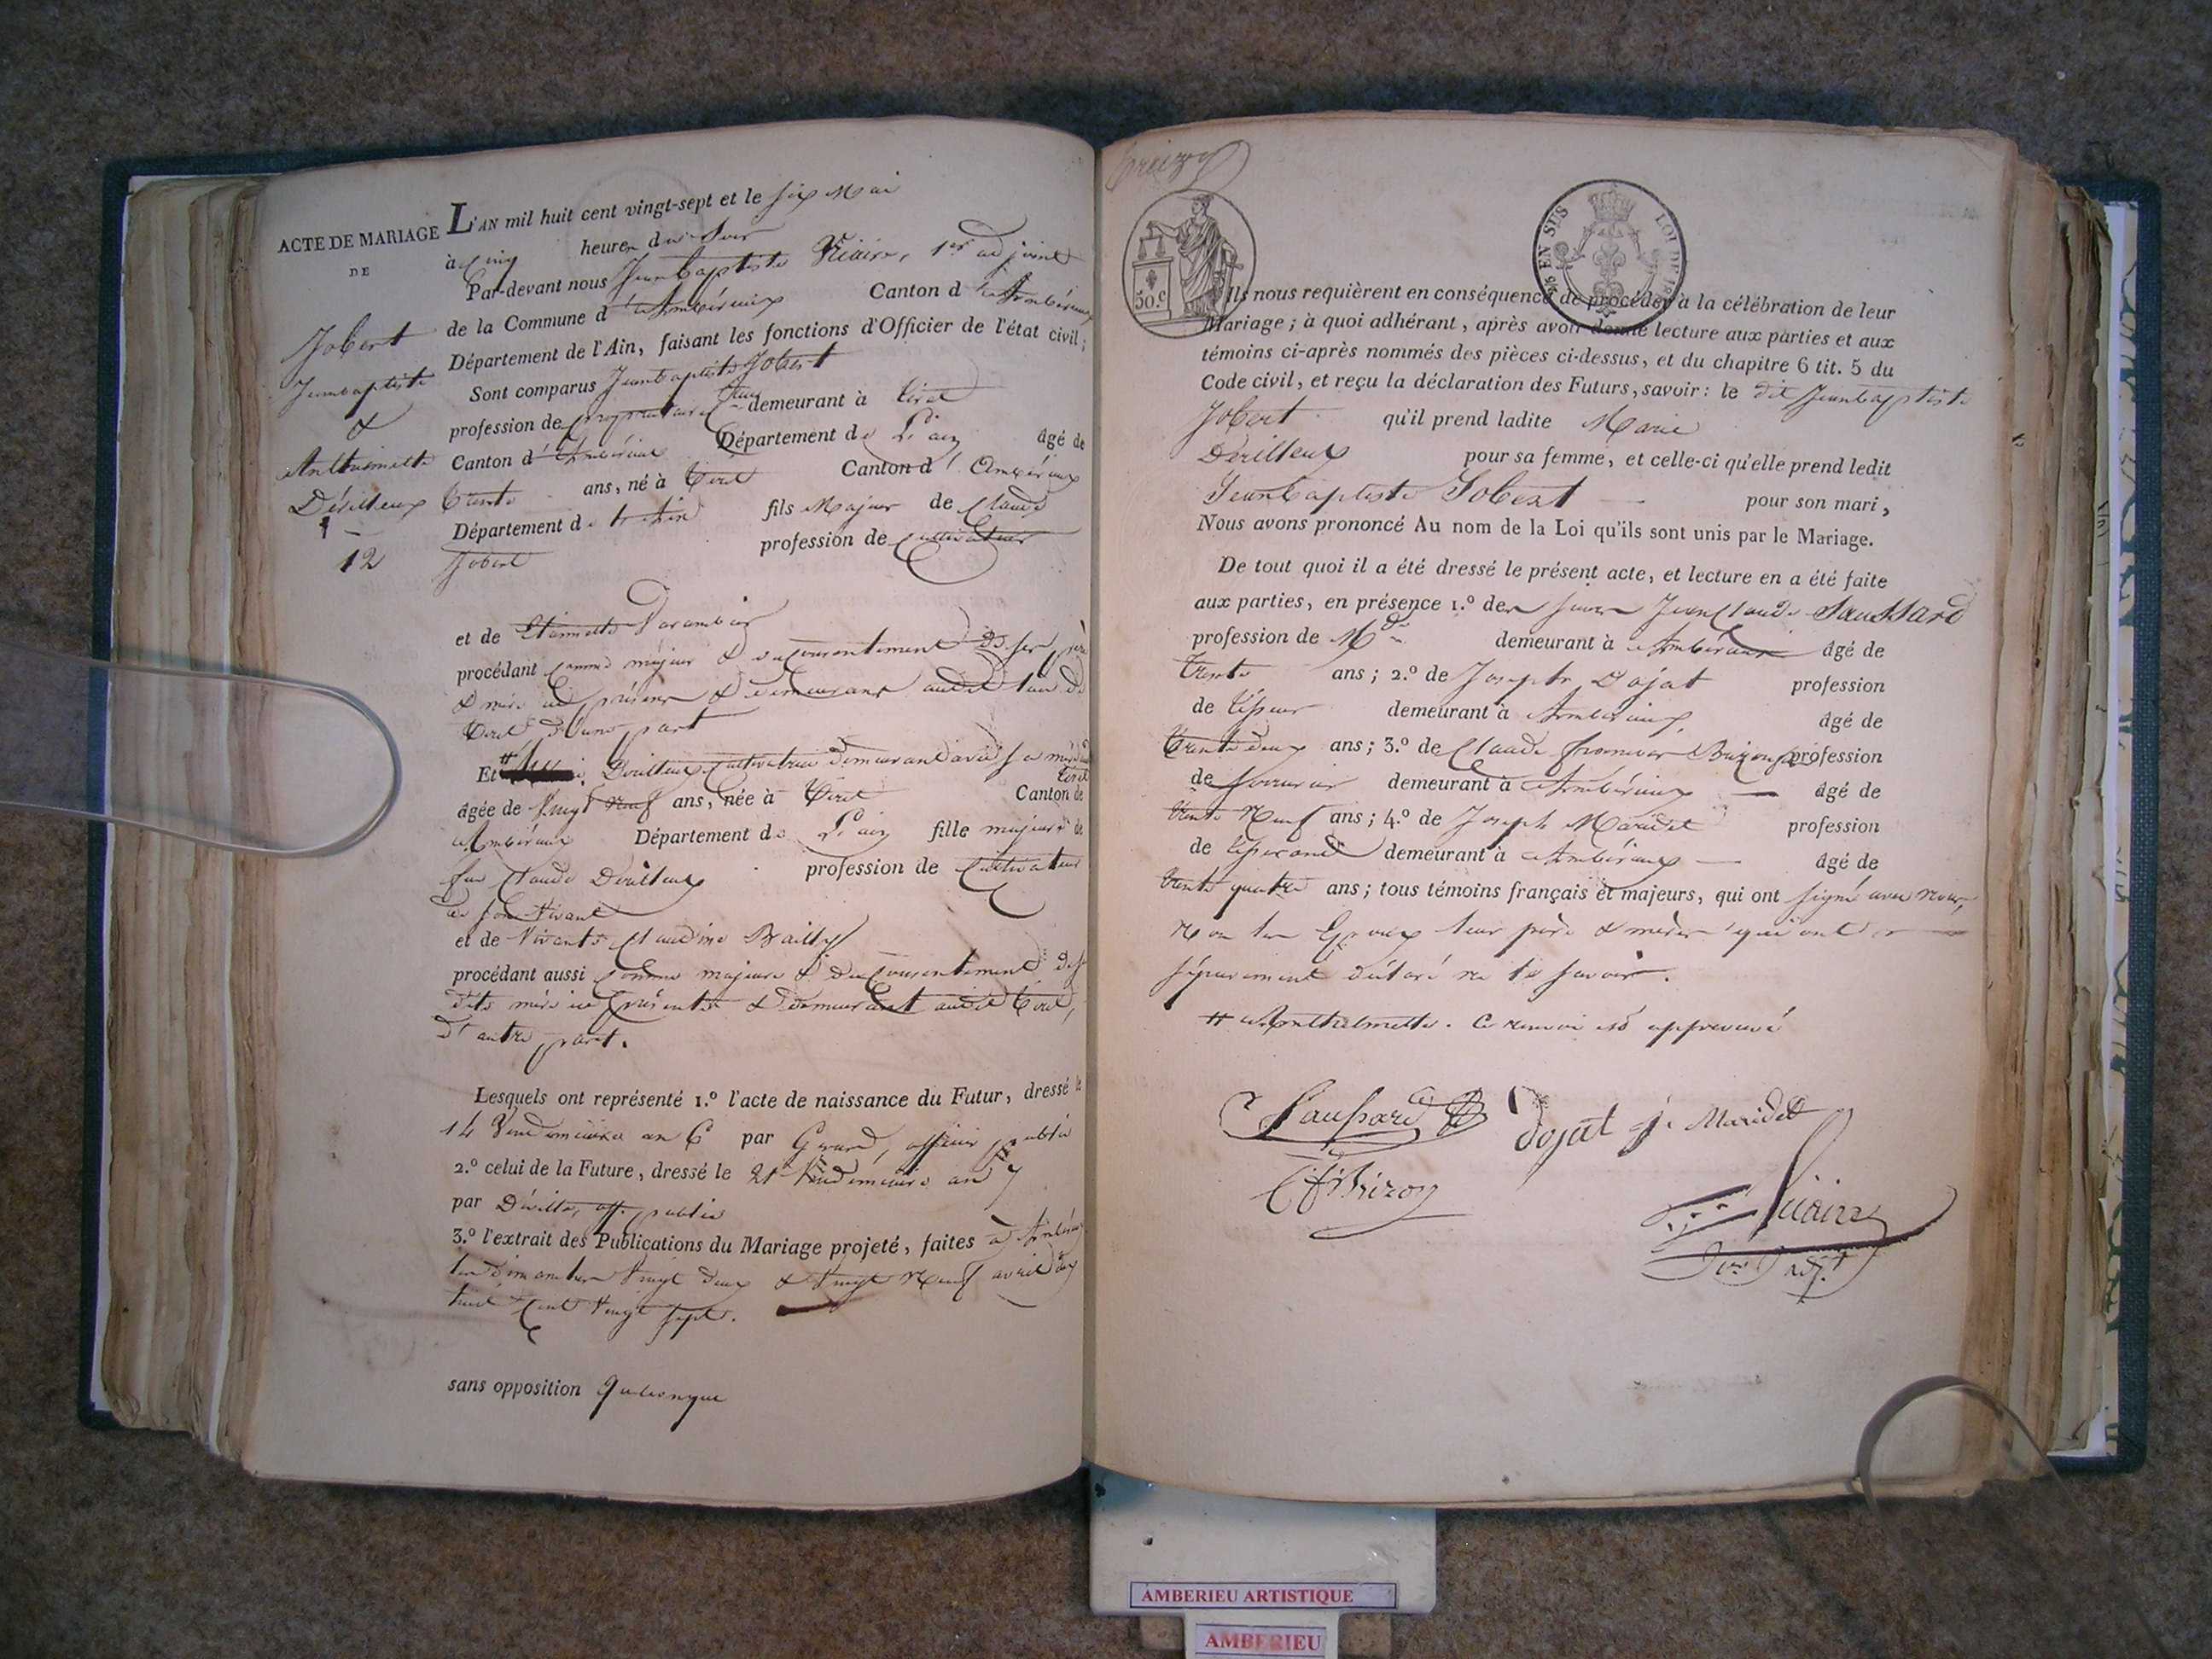 ACTE DE MARIAGE
DE
Jobert
Jeanbaptiste
&
Anthelmette
Dérilleux
12
L'AN mil huit cent vingt-sept et le six Mai
à Cinq heures du Soir
Par-devant nous Jeanbaptiste 1er adjoint
de la Commune d'Ambérieux Canton d'Ambérieux
Département de l'Ain, faisant les fonctions d'Officier de l'état civil;
Sont comparus Jeanbaptiste Jobert
profession de propriétaire demeurant à Tiret
Canton d'Ambérieux Département de L'ain âgé de
trente ans, né à Tiret Canton d'Ambérieux
Département de l'Ain fils Majeur de Claude
Jobert profession de Cultivateur
et de Varambier
procédant comme majeur & du Consentement de ses père
& mère ici présens & demeurans audit lieu de
Tiret d'une part
Et # Dérilleux Cultivatrice demeurant avec sa mère audit Tiret
âgée de Vingt Neuf ans, née à Tiret Canton de
Ambérieux Département de L'ain fille majeure de
feu Claude Dérilleux profession de Cultivateur
de son Vivant
et de Vivante Claudine Bailly
procédant aussi Comme majeure & du Consentement de sa
dite mère ici présente & demeurant audit Tiret,
d'autre part.
Lesquels ont représenté 1.º l'acte de naissance du Futur, dressé le
14 Vendemiaire an 6 par Gerard, officier public
2.º celui de la Future, dressé le 21 Vendemiaire an 7
par off. public
3.º l'extrait des Publications du Mariage projeté, faites à Ambérieux
les dimanches Vingt deux & Vingt Neuf avril dix
huit Cent Vingt sept.
sans opposition Quelconque
50.c
EN SUS
LOI DE
Ils nous requièrent en conséquence de procéder à la célébration de leur
Mariage; à quoi adhérant, après avoir donné lecture aux parties et aux
témoins ci-après nommés des pièces ci-dessus, et du chapitre 6 tit. 5 du
Code civil, et reçu la déclaration des Futurs, savoir: le dit Jeanbaptiste
Jobert qu'il prend ladite Marie
Dérilleux pour sa femme, et celle-ci qu'elle prend ledit
Jeanbaptiste Jobert pour son mari,
Nous avons prononcé Au nom de la Loi qu'ils sont unis par le Mariage.
De tout quoi il a été dressé le présent acte, et lecture en a été faite
aux parties, en présence 1.º des sieurs Jean Claude Saussard
profession de Md demeurant à Ambérieux âgé de
trente ans; 2.º de Joseph Dojat profession
de demeurant à Ambérieux, âgé de
trente deux ans; 3.º de Claude profession
de demeurant à Ambérieux âgé de
trente Neuf ans; 4.º de Joseph Maridet profession
de demeurant à Ambérieux âgé de
trente quatre ans; tous témoins français et majeurs, qui ont signé avec nous,
Non les Epoux leur père & mères qui ont
séparément déclaré ne le savoir.
# Anthelmette. Ce renvoi est approuvé
Saussard
Dojat
j. Maridet